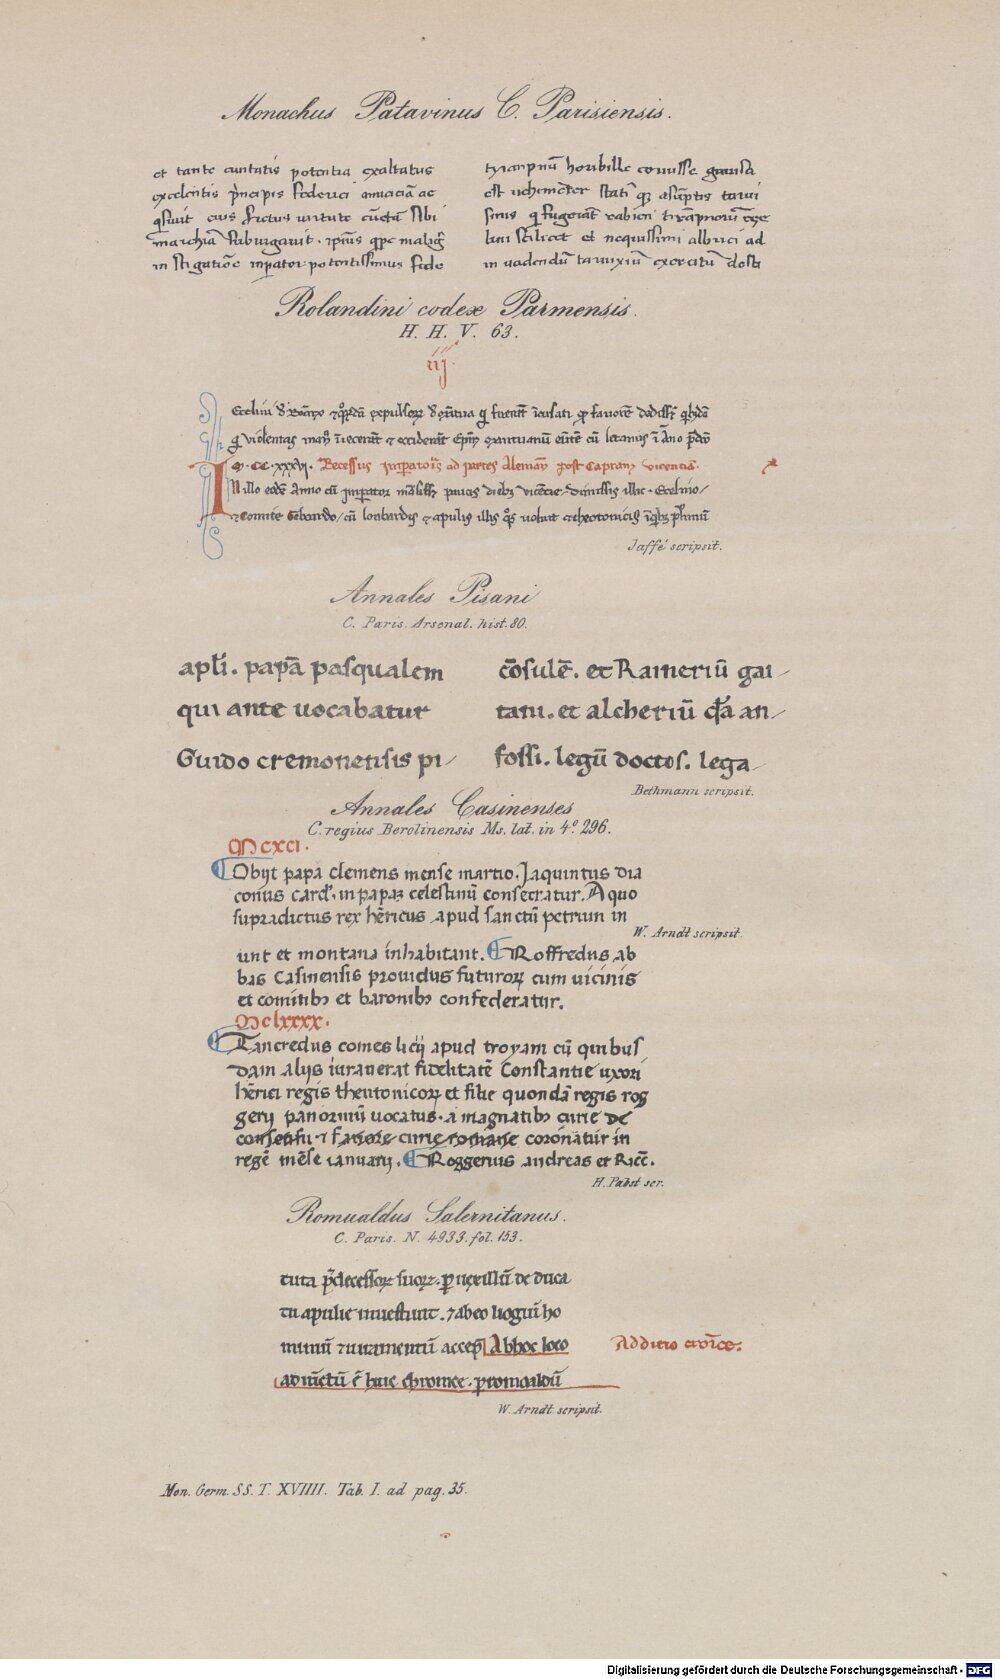 Monachus Patavinus C. Parisiensis.
et tante ciuitatis potentia exaltatus
excelētis p̄ncipis Federici amiciciā ac
q̄siuit eius fretus uirtute cūcta sibi
marchiā subiugauit. ip̄ius q̄pe malig̃
in stigatiōe inꝑator potentissimus fede
tyrampnū horibille
est uehemēter statī qꝫ asūptis tarui
sinis q̄ fugerāt rabiem tirāpnorū
lini scilicet et nequissimi albrici ad
in uadendū taruixiū exercitū
Rolandini codex Parmensis.
H. H. V. 63.
iij
Ecelini expulsorꝫ fuerūt īculsati ꝓ fauorē
q̄ violentas man⁹ īiecerāt ⁊ occiderāt Ep̄m mantuanū eūtē cū letaniis ī Āno
M.CC.xxxvj. Recessus Inꝑatoris ad partes Alemañ post Captam vicenciā.
IN illo eodē Anno cū Imꝑator paucis diebꝫ vicēcie dimissis illic Ecelino/
⁊ Comite Gebardo/ cū lonbardis ⁊ apulis illis q̄s voluit ⁊ theotonicis
Jaffé scripsit.
Annales Pisani
C. Paris. Arsenal. hist. 80.
apl̄i. papā pasqualem
qui ante uocabatur
Guido cremonensis pi
cōsulē. et Raineriū gai
tani. et alcheriū q̄dā an
fossi. legū doctos. lega
Bethmann scripsit.
Annales Casinenses
C. regius Berolinensis Ms. lat. in 4º 296.
Mcxci.
Obijt papa clemens mense martio. Jaquintus dia
conus card'. in papaꝫ celestinū consecratur. A quo
supradictus rex hēricus apud sanctū petrum in
W. Arndt scripsit.
unt et montana inhabitant. Roffredus ab
bas Casinensis prouidus futuroꝝ cum uicinis
et comitibꝫ et baronibꝫ confederatur.
Mclxxxx.
Tancredus comes licij apud troyam cū quibus
dam alijs iurauerat fidelitatē Constantie uxori
hērici regis theutonicoꝝ et filie quondā regis rog
gerij panormū uocatus. a magnatibꝫ curie de
consensu ⁊ fauore curie romane coronatur in
regē mēse ianuarij. Roggerius andreas et Ricc̄.
H. Pabst scr.
Romualdus Salernitanus.
C. Paris. N. 4933. fol. 153.
tuta p̄decessoꝝ suoꝝ. ꝑ uexillū de duca
tu apulie inuestiuit. ⁊ ab eo liogiū ho
miniū ⁊ iuramentū accep̄ Ab hoc loco
adiūctū ē huic chronice. ꝑ romoaldū
Additio cronice.
W. Arndt scripsit.
Mon. Germ. SS. T. XVIIII. Tab. I. ad pag. 35.
Digitalisierung gefördert durch die Deutsche Forschungsgemeinschaft - DFG